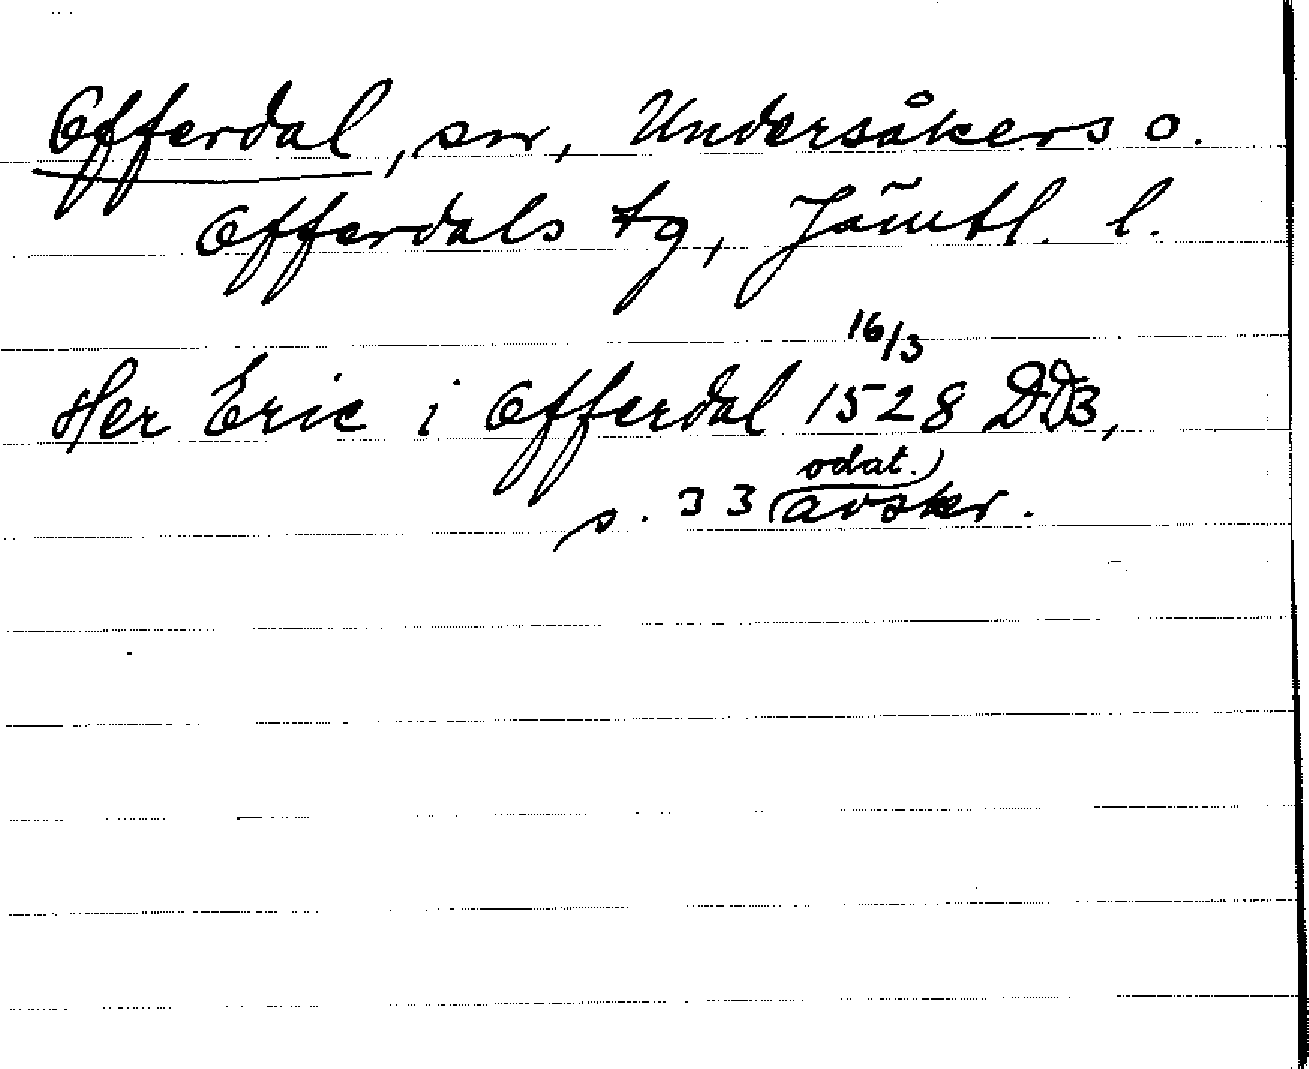 Offerdal, sn, Undersåkers o.
Offerdals tg, Jämtl. l.
16/3
Her Eric i Offerdal 1528 DDB,
odat.)
s. 33 (avskr.